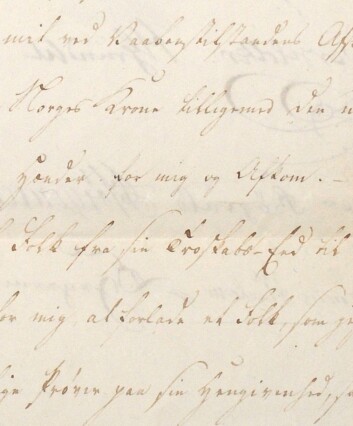 mit ved Vaabenstilstandens Af
Norges Krone tilligemed den
hænder for mig og Afkom. –
Folk fra sin Troskabs-Eed til
for mig, at forlade et Folk, som
ige Prøver paa sin Hengivenhed,